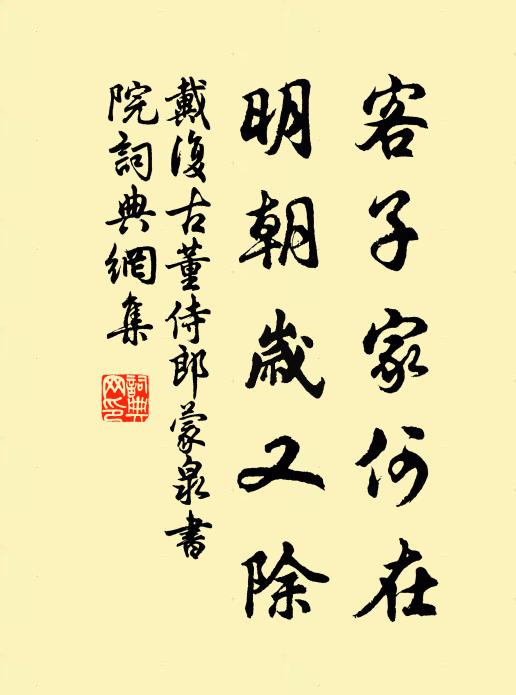 客子家何在
明朝歲又除
戴復古董侍郎蒙泉書
院詞典網集
詞典
网印